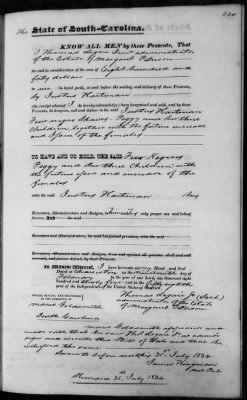 520
The State of South-Carolina.
KNOW ALL MEN by these Presents, That
I Thomas Legare Junr administrator
of the Estate of Margaret Peterson
for and in consideration of the sum of Eight hundred and
forty dollars
to me in hand paid, at and before the sealing and delivery of these Presents,
by Justus Hartman
(the receipt whereof I do hereby acknowledge) have bargained and sold, and by these
Presents, do bargain, sell and deliver to the said Justus Hartman
Four negro Slaves. Peggy and her three
Children together with the future increase
and of the females
TO HAVE AND TO HOLD, THE SAID Four Negroes
Peggy and her three Children with
the future and increase of the
females
unto the said Justus Hartman his
Executors, Administrators and Assigns, to
only proper use and behoof
forever.
Executors, Administrators and Assigns,
In Witness Whereof, I have hereunto set my Hand and Seal
Dated at Charleston on the
day of
February in the year of our Lord, one thousand eight
hundred and thirty four and in the fifty eighth
year of the Independence of the United States of America
SIGNED, SEALED, AND DELIVERED
IN THE PRESENCE OF
Thomas Legare Jr (Seal)
administrator of the Estate
of Margaret Peterson
Morris Goldsmith
South Carolina
Morris Goldsmith appeared and
made oath that he saw Thos Legare Jr
sign and deliver this Bill of Sale and that he
witnessed the same
Sworn to before me this 31st July 1834
31st July 1834